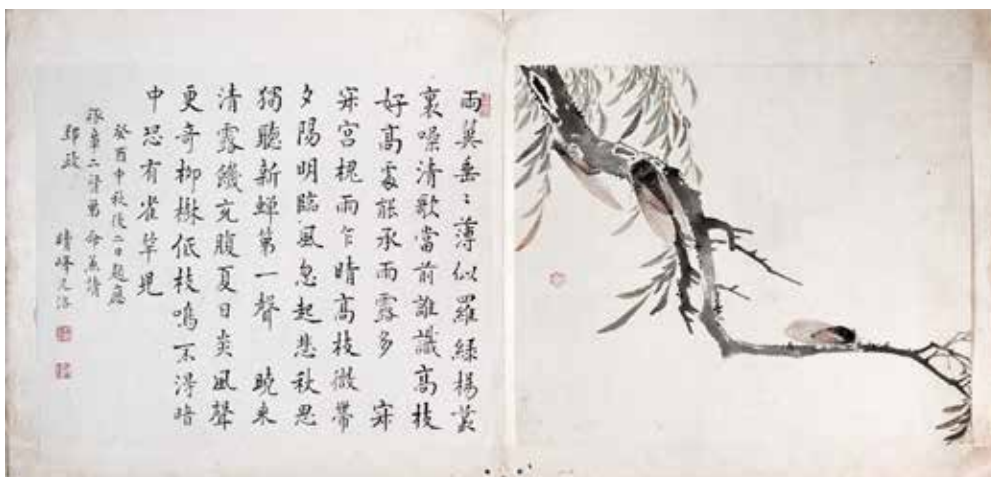 兩翼垂〻薄似羅綠楊叢
裏噪清歌當前誰識高枝
好高處能承雨露多 寂
寂宮槐雨乍晴高枝微帶
夕陽明臨風忽起悲秋思
獨聽新蟬第一聲 曉來
清露饑充腹夏日炎風聲
更奇柳樹低枝鳴不得暗
中恐有雀
癸酉中秋後二日題應
章二 命並請
郢政 晴峰